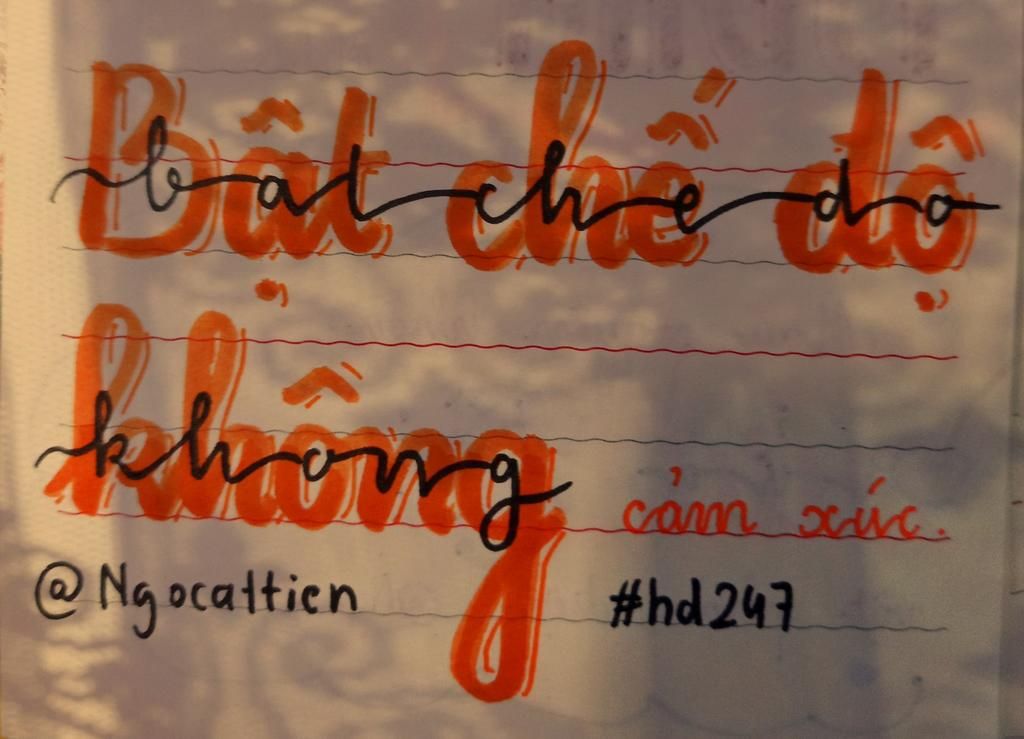 Bật chế độ
không cảm xúc.
@Ngocattien #hd247